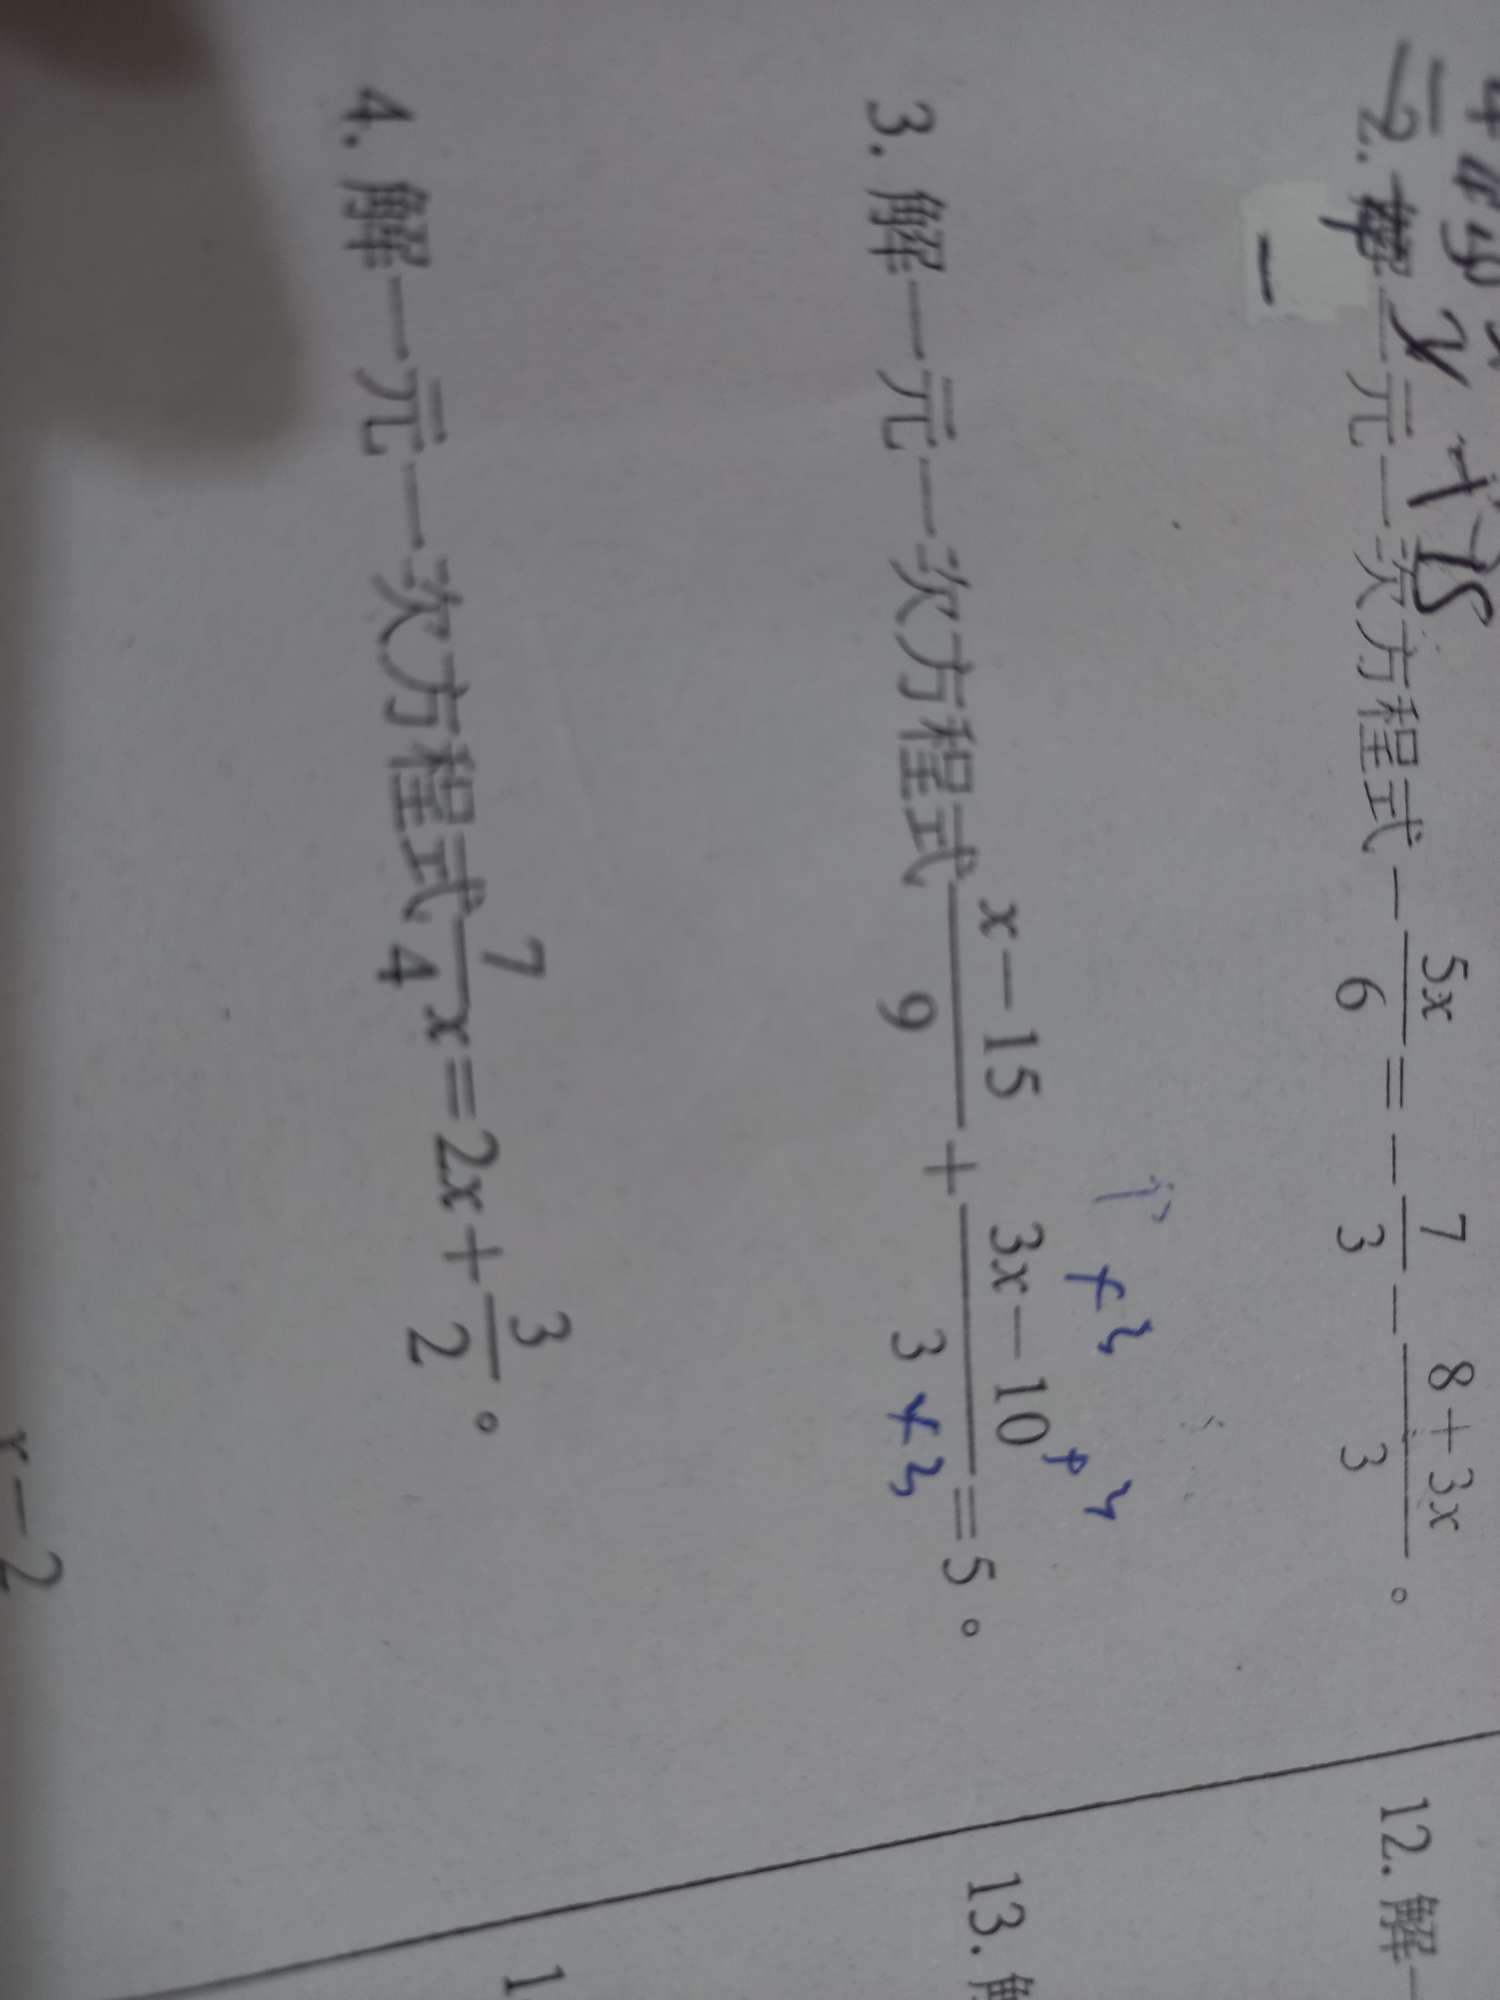 2. 解一元一次方程式 -5x/6 = -7/3 - (8+3x)/3。
×3
3. 解一元一次方程式 (x-15)/9 + (3x-10)/3 = 5。
×3
4. 解一元一次方程式 7/4 x = 2x + 3/2。
12. 解一
13. 解
1
-2